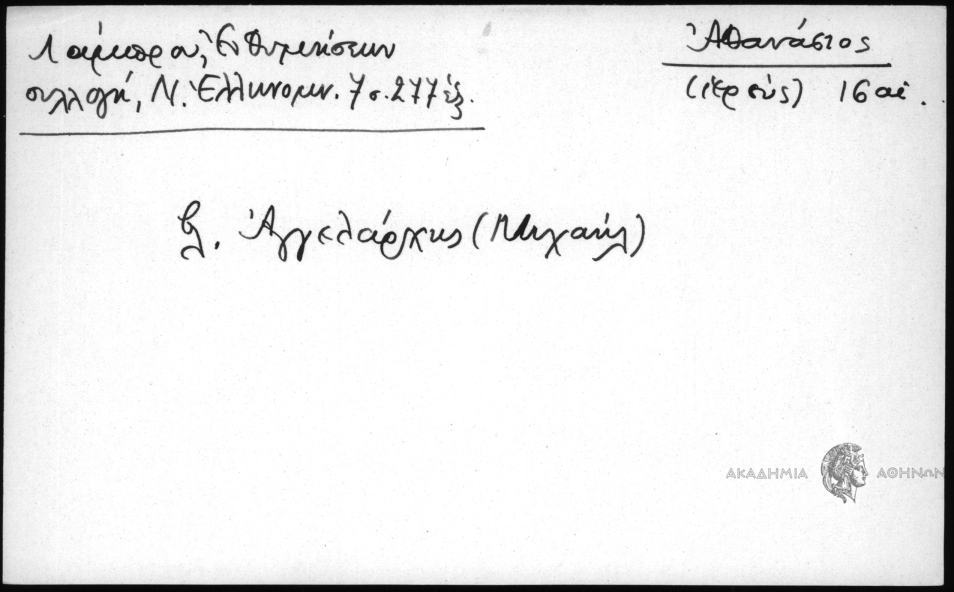 Λάμπρου, Ἐνθυμήσεων
συλλογή, Ν. Ἑλληνομν. 7 σ. 277 ἑξ.
Ἀθανάσιος
(ἱερεύς) 16 αἰ.
βλ. Ἀγγελάρχης (Μιχαήλ)
ΑΚΑΔΗΜΙΑ ΑΘΗΝΩΝ